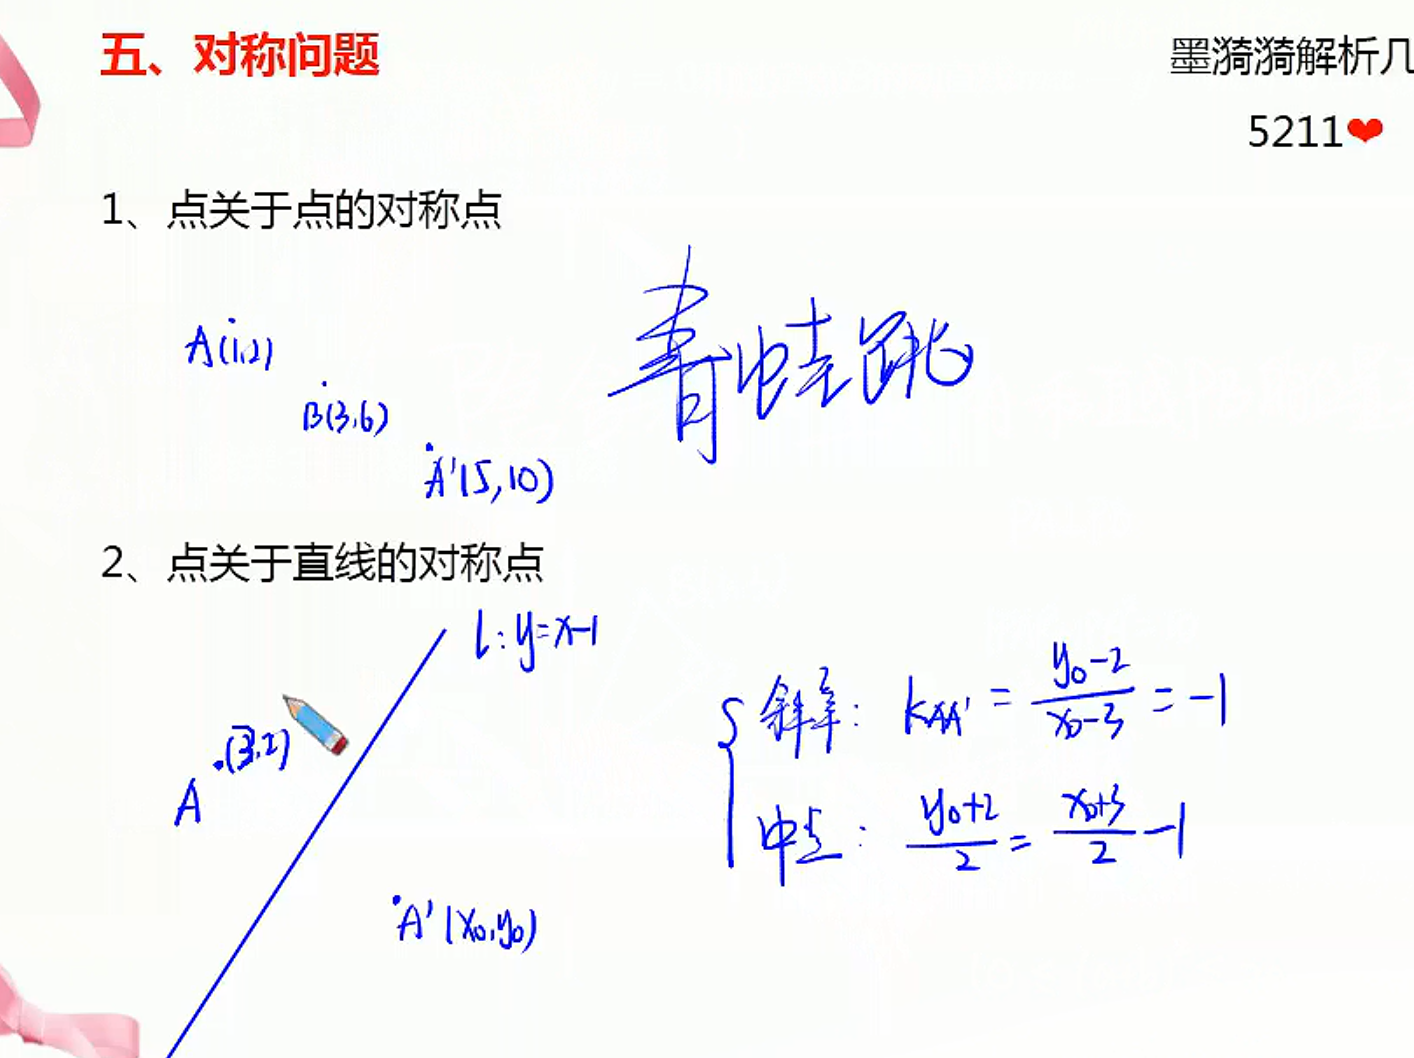 五、对称问题
墨漪漪解析几
5211❤
1、点关于点的对称点
A(1,2)
B(3,6)
A'(5,10)
青蛙跳
2、点关于直线的对称点
l:y=x-1
A .(3,2)
A'(x₀,y₀)
斜率: K_AA' = (y₀-2)/(x₀-3) = -1
中点: (y₀+2)/2 = (x₀+3)/2 -1